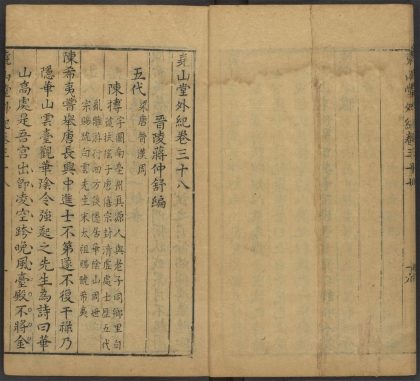 堯山堂外紀卷三十八
晉陵蔣仲舒編
五代 梁唐晉漢周
陳摶 字圖南亳州真源人與老子同鄉里自
號扶搖子唐僖宗封清虛處士歷五代
亂離游行四方後隱居華陰山周世
宗賜號白雲先生宋太祖賜號希夷
陳希夷嘗舉唐長興中進士不第遂不復干祿乃
隱華山雲臺觀華陰令強起之先生爲詩曰華
山高處是吾宮出即凌空跨曉風臺殿不將金